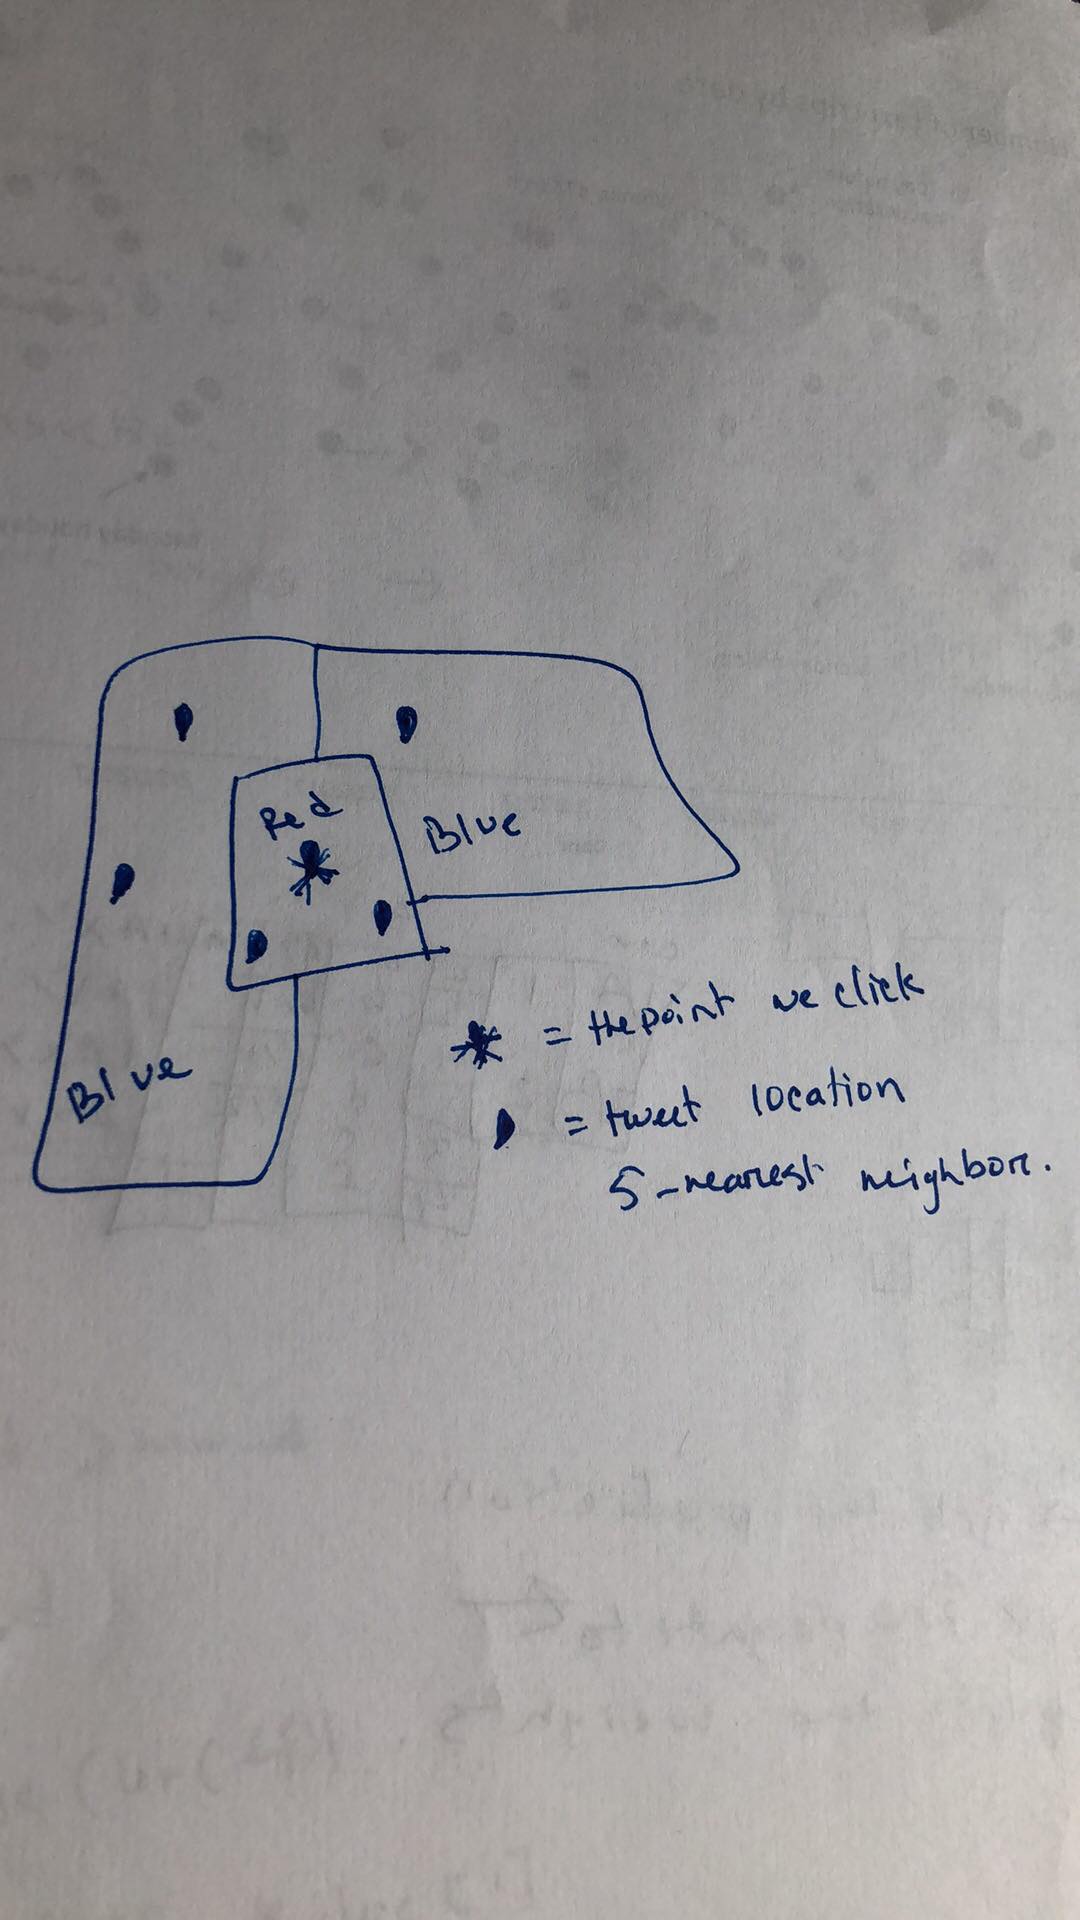 Red
Blue
Blue
= the point we click
= tweet location
5-nearest neighbore.